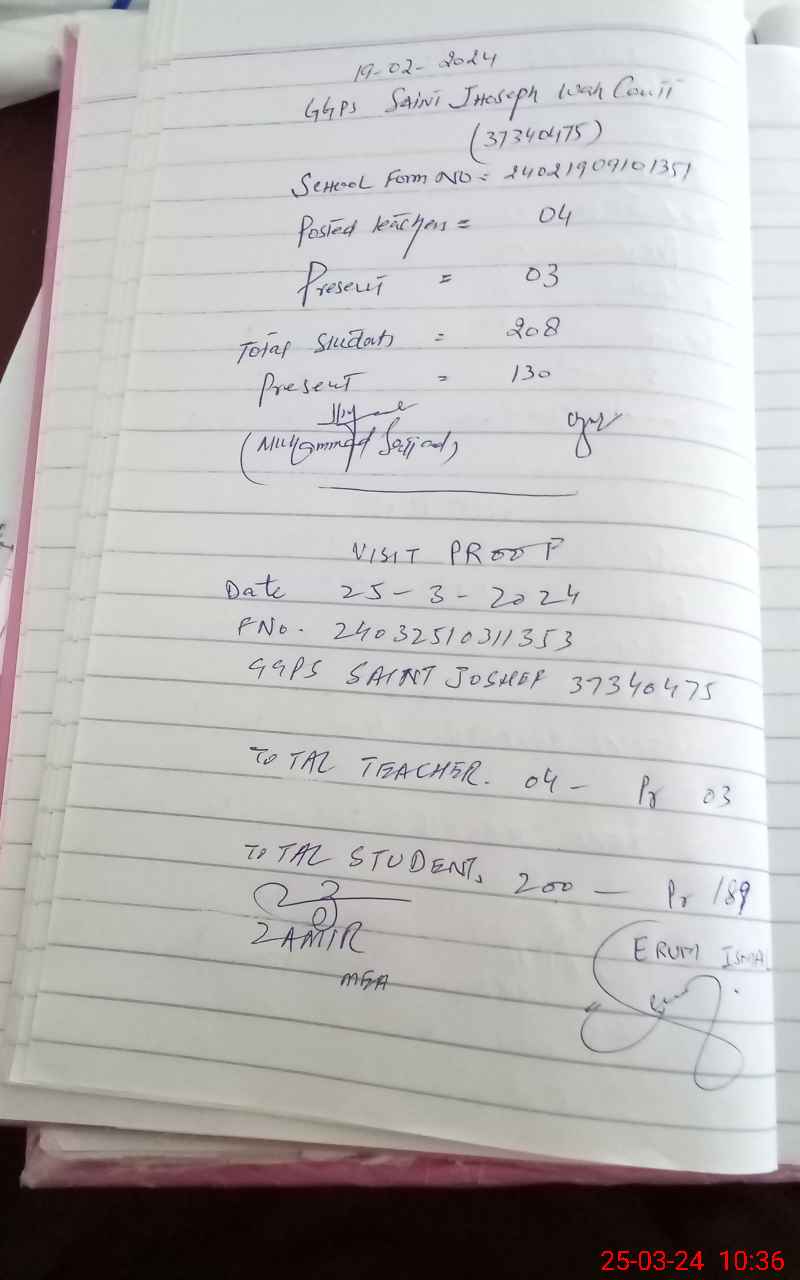 19-02-2024
GGPS SAINT JHOSEPH Wah Cantt
(37340475)
School Form NO = 24021909101351
Posted teachers = 04
Present = 03
Total Students = 208
Present = 130
(Muhammad Sajjad)
VISIT PROOF
Date 25-3-2024
FNo. 24032510311353
GGPS SAINT JOSHEF 37340475
TOTAL TEACHER. 04 - Pr 03
TOTAL STUDENT, 200 - Pr 189
ZAMIR
ERUM ISMAL
MEA
25-03-24 10:36